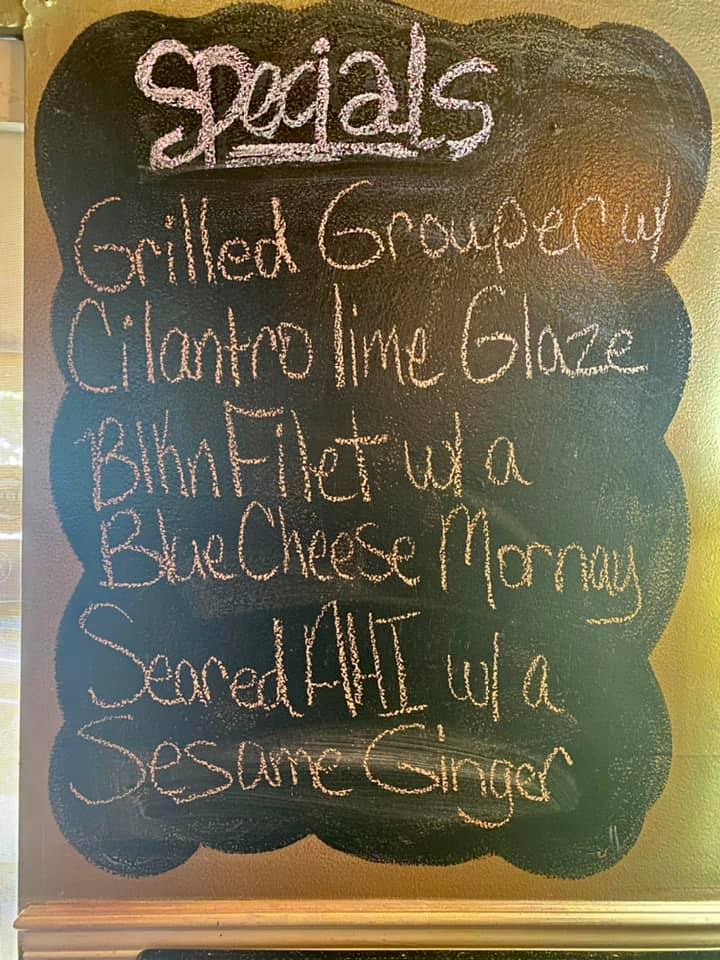 Specials
Grilled Grouper w/
Cilantro lime Glaze
Blkn Filet w/ a
Blue Cheese Mornay
Seared AHI w/ a
Sesame Ginger